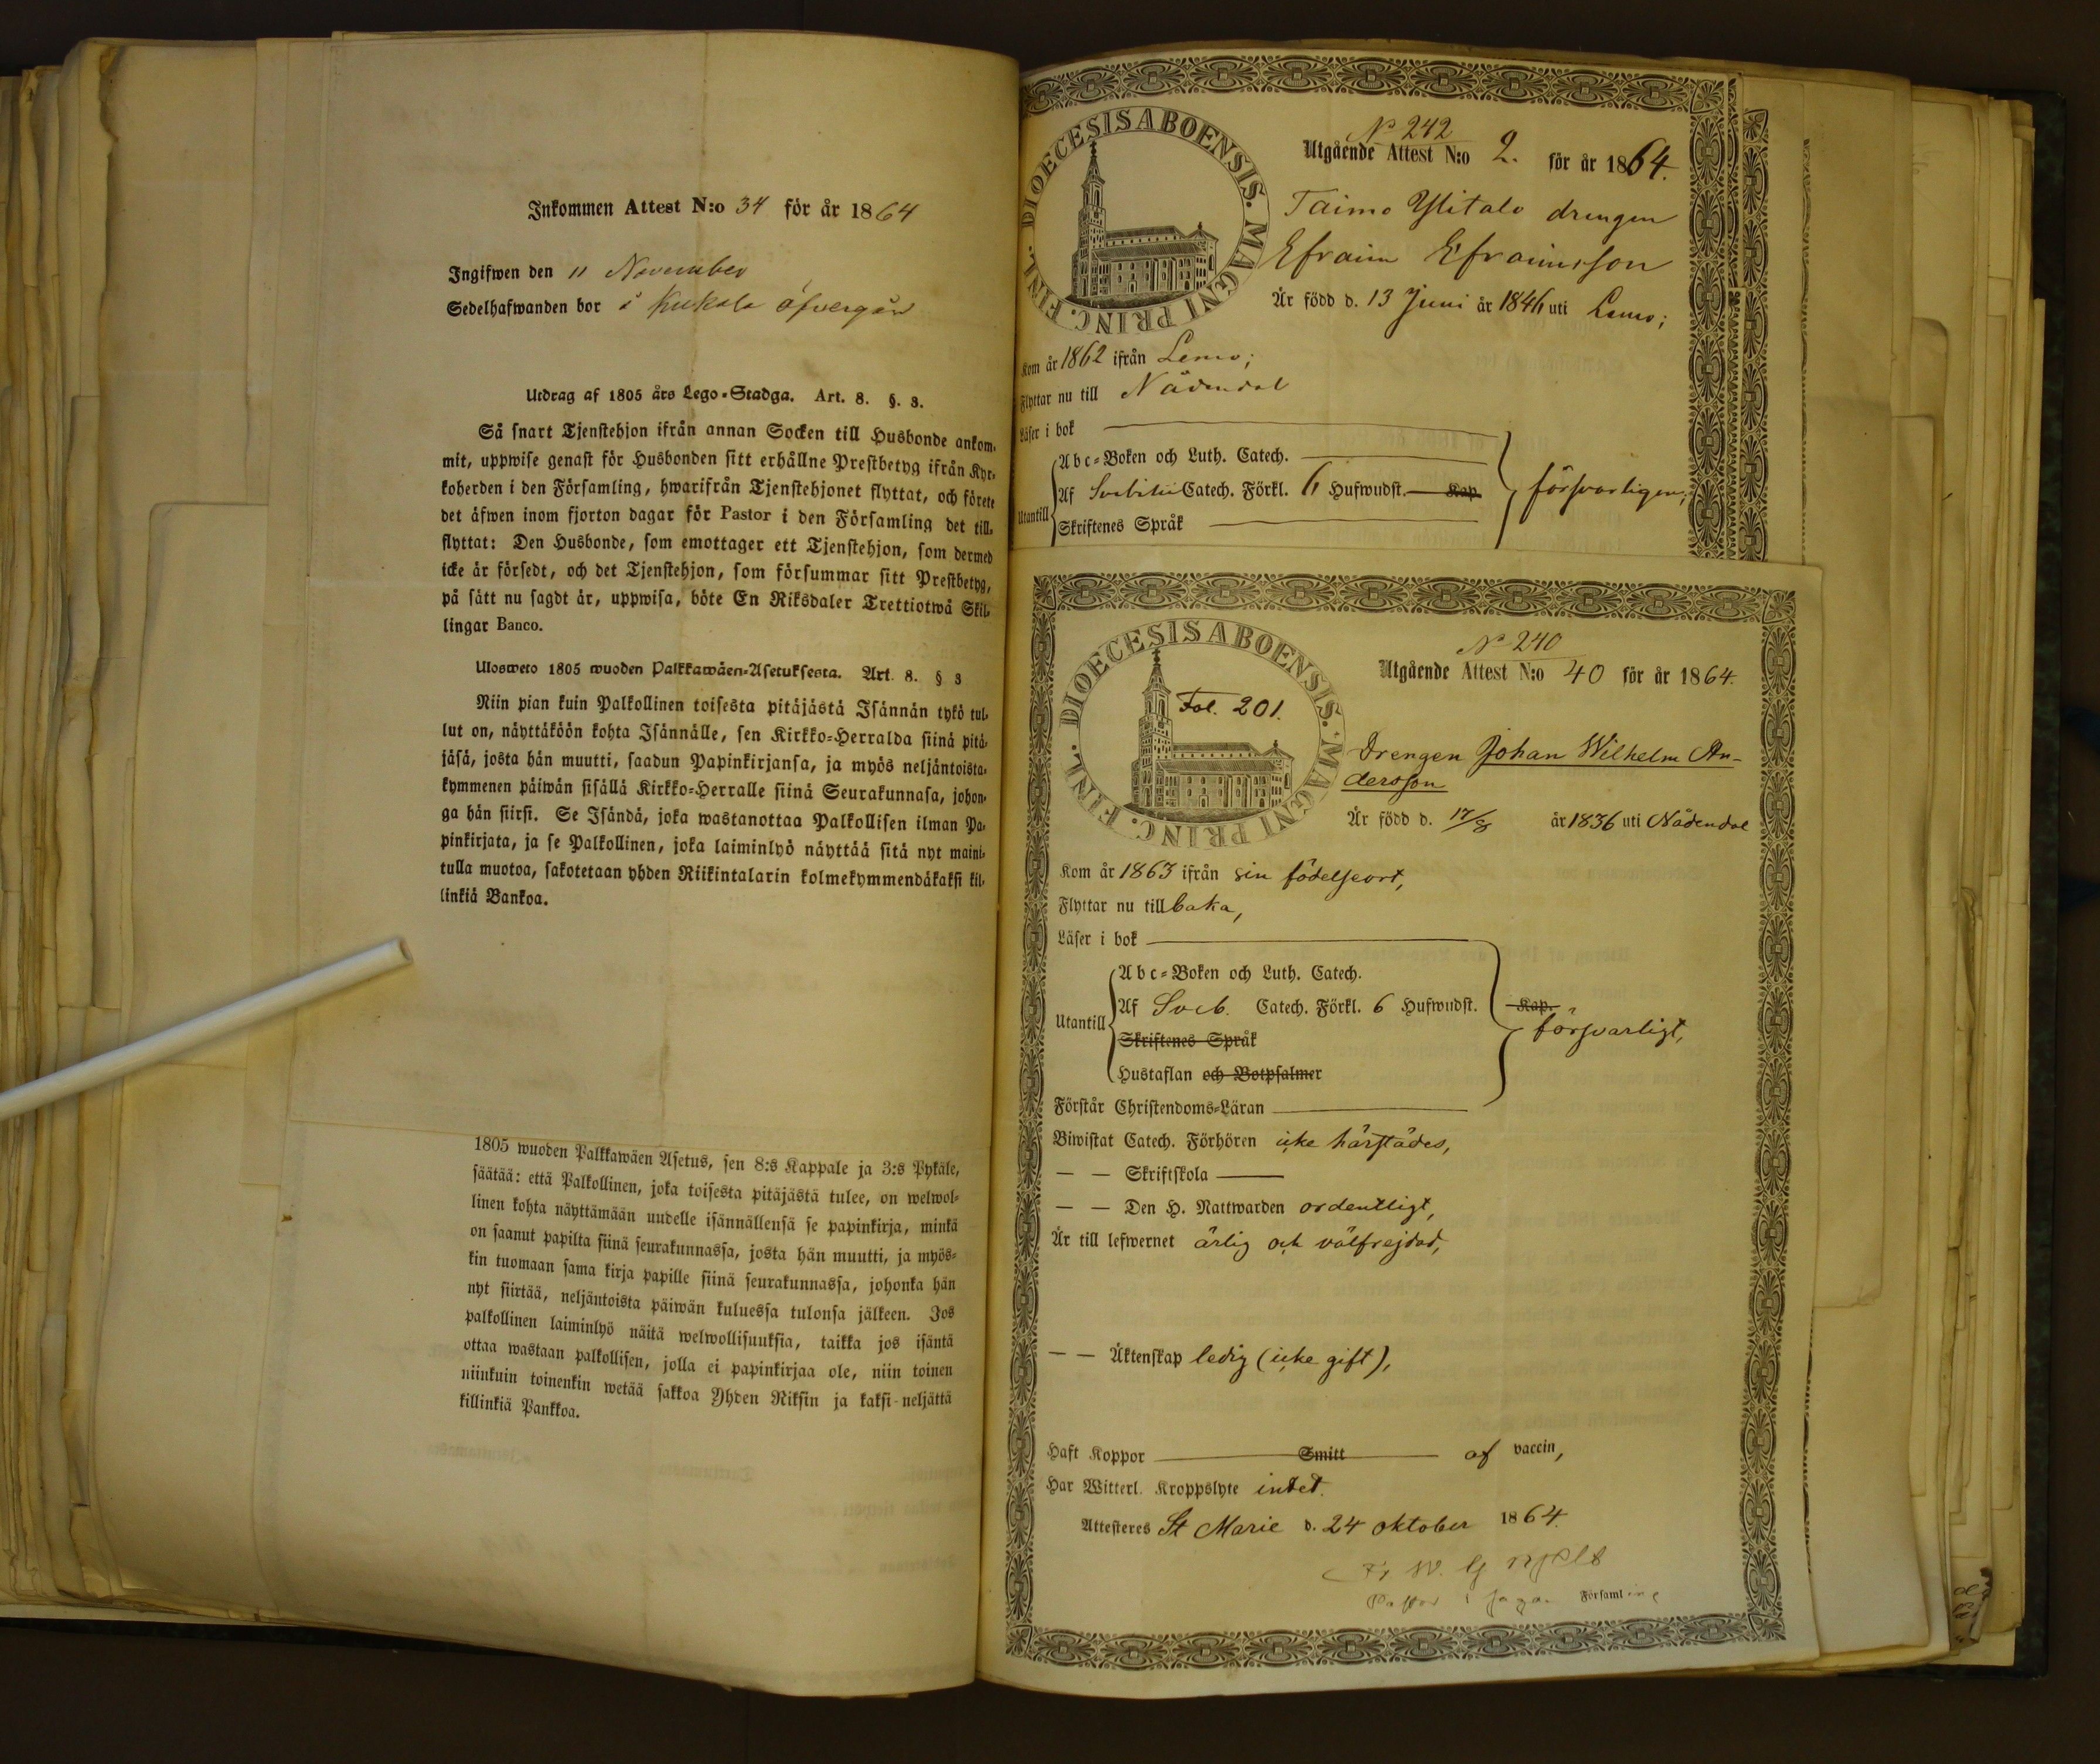 Inkommen Attest N:o 34 för år 1864
Ingifwen den 11 November
Sedelhafwanden bor i Kukola öfvergård
Utdrag af 1805 års Lego-Stadga. Art. 8. §. 3.
Så snart Tjenstehjon ifrån annan Socken till Husbonde ankom-
mit, uppwise genast för Husbonden sitt erhållne Prestbetyg ifrån Kyr-
koherden i den Församling, hwarifrån Tjenstehjonet flyttat, och förete
det äfwen inom fjorton dagar för Pastor i den Församling det till-
flyttat: Den Husbonde, som emottager ett Tjenstehjon, som dermed
icke är försedt, och det Tjenstehjon, som försummar sitt Prestbetyg,
på sätt nu sagdt är, uppwisa, böte En Riksdaler Trettiotwå Skil-
lingar Banco.
Ulosweto 1805 wuoden Palkkawäen-Asetuksesta. Art. 8. § 3
Niin pian kuin Palkollinen toisesta pitäjästä Isännän tykö tul-
lut on, näyttäköön kohta Isännälle, sen Kirkko-Herralda siinä pitä-
jäsä, josta hän muutti, saadun Papinkirjansa, ja myös neljäntoista-
kymmenen päiwän sisällä Kirkko-Herralle siinä Seurakunnasa, johon-
ga hän siirsi. Se Isändä, joka wastanottaa Palkollisen ilman Pa-
pinkirjata, ja se Palkollinen, joka laiminlyö näyttää sitä nyt maini-
tulla muotoa, sakotetaan yhden Riikintalarin kolmekymmendäkaksi kil-
linkiä Bankoa.
1805 wuoden Palkkawäen Asetus, sen 8:s Kappale ja 3:s Pykäle,
säätää: että Palkollinen, joka toisesta pitäjästä tulee, on welwol-
linen kohta näyttämään uudelle isännällensä se papinkirja, minkä
on saanut papilta siinä seurakunnassa, josta hän muutti, ja myös-
kin tuomaan sama kirja papille siinä seurakunnassa, johonka hän
nyt siirtää, neljäntoista päiwän kuluessa tulonsa jälkeen. Jos
palkollinen laiminlyö näitä welwollisuuksia, taikka jos isäntä
ottaa wastaan palkollisen, jolla ei papinkirjaa ole, niin toinen
niinkuin toinenkin wetää sakkoa Yhden Riksin ja kaksi-neljättä
killinkiä Pankkoa.
DIOECESIS ABOENSIS. MAGNI PRINC. FINL.
N° 242
Utgående Attest N:o 2. för år 1864.
Taimo Ylitalo drengen
Efraim Efraimsson
Är född d. 13 Juni år 1846 uti Lemo;
Kom år 1862 ifrån Lemo;
Flyttar nu till Nådendal
Läser i bok
Utantill
Abc-Boken och Luth. Catech.
Af Svebilii Catech. Förkl. 6 Hufwudst. Kap.
Skriftenes Språk
försvarligen;
DIOECESIS ABOENSIS. MAGNI PRINC. FINL.
Fol. 201.
N° 240
Utgående Attest N:o 40 för år 1864.
Drengen Johan Wilhelm An-
dersson
Är född d. 17/8 år 1836 uti Nådendal
Kom år 1863 ifrån sin födelseort,
Flyttar nu tillbaka,
Läser i bok
Utantill
Abc-Boken och Luth. Catech.
Af Sveb. Catech. Förkl. 6 Hufwudst. Kap.
Skriftenes Språk
Hustaflan och Botpsalmer
försvarligt,
Förstår Christendoms-Läran
Biwistat Catech. Förhören icke härstädes,
— — Skriftskola
— — Den H. Nattwarden ordentligt,
Är till lefwernet ärlig och välfrejdad,
— — Äktenskap ledig (icke gift),
Haft Koppor Smitt af vaccin,
Har Witterl. Kroppslyte intet.
Attesteres St Marie d. 24 oktober 1864.
Församling